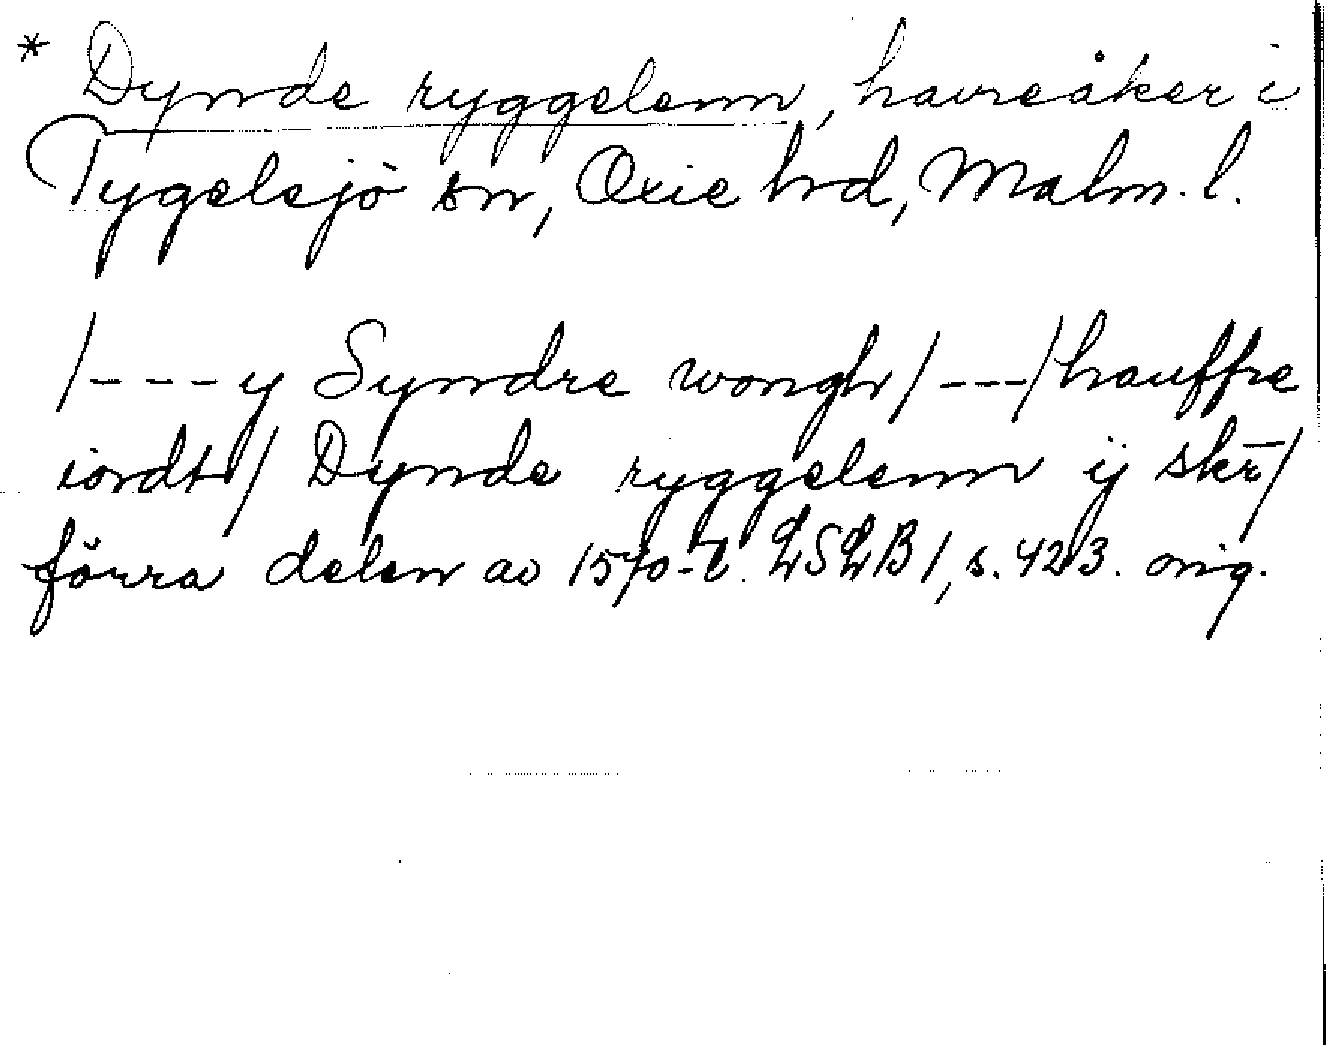 * Dynde ryggelenn, havreåker i
Tygelsjö sn, Oxie hd, Malm. l.
/---y Syndre wongh/---/hauffre
iordt/ Dynde ryggelenn ij skr̄/
förra delen av 1570-t. LSLB 1, s. 423. orig.